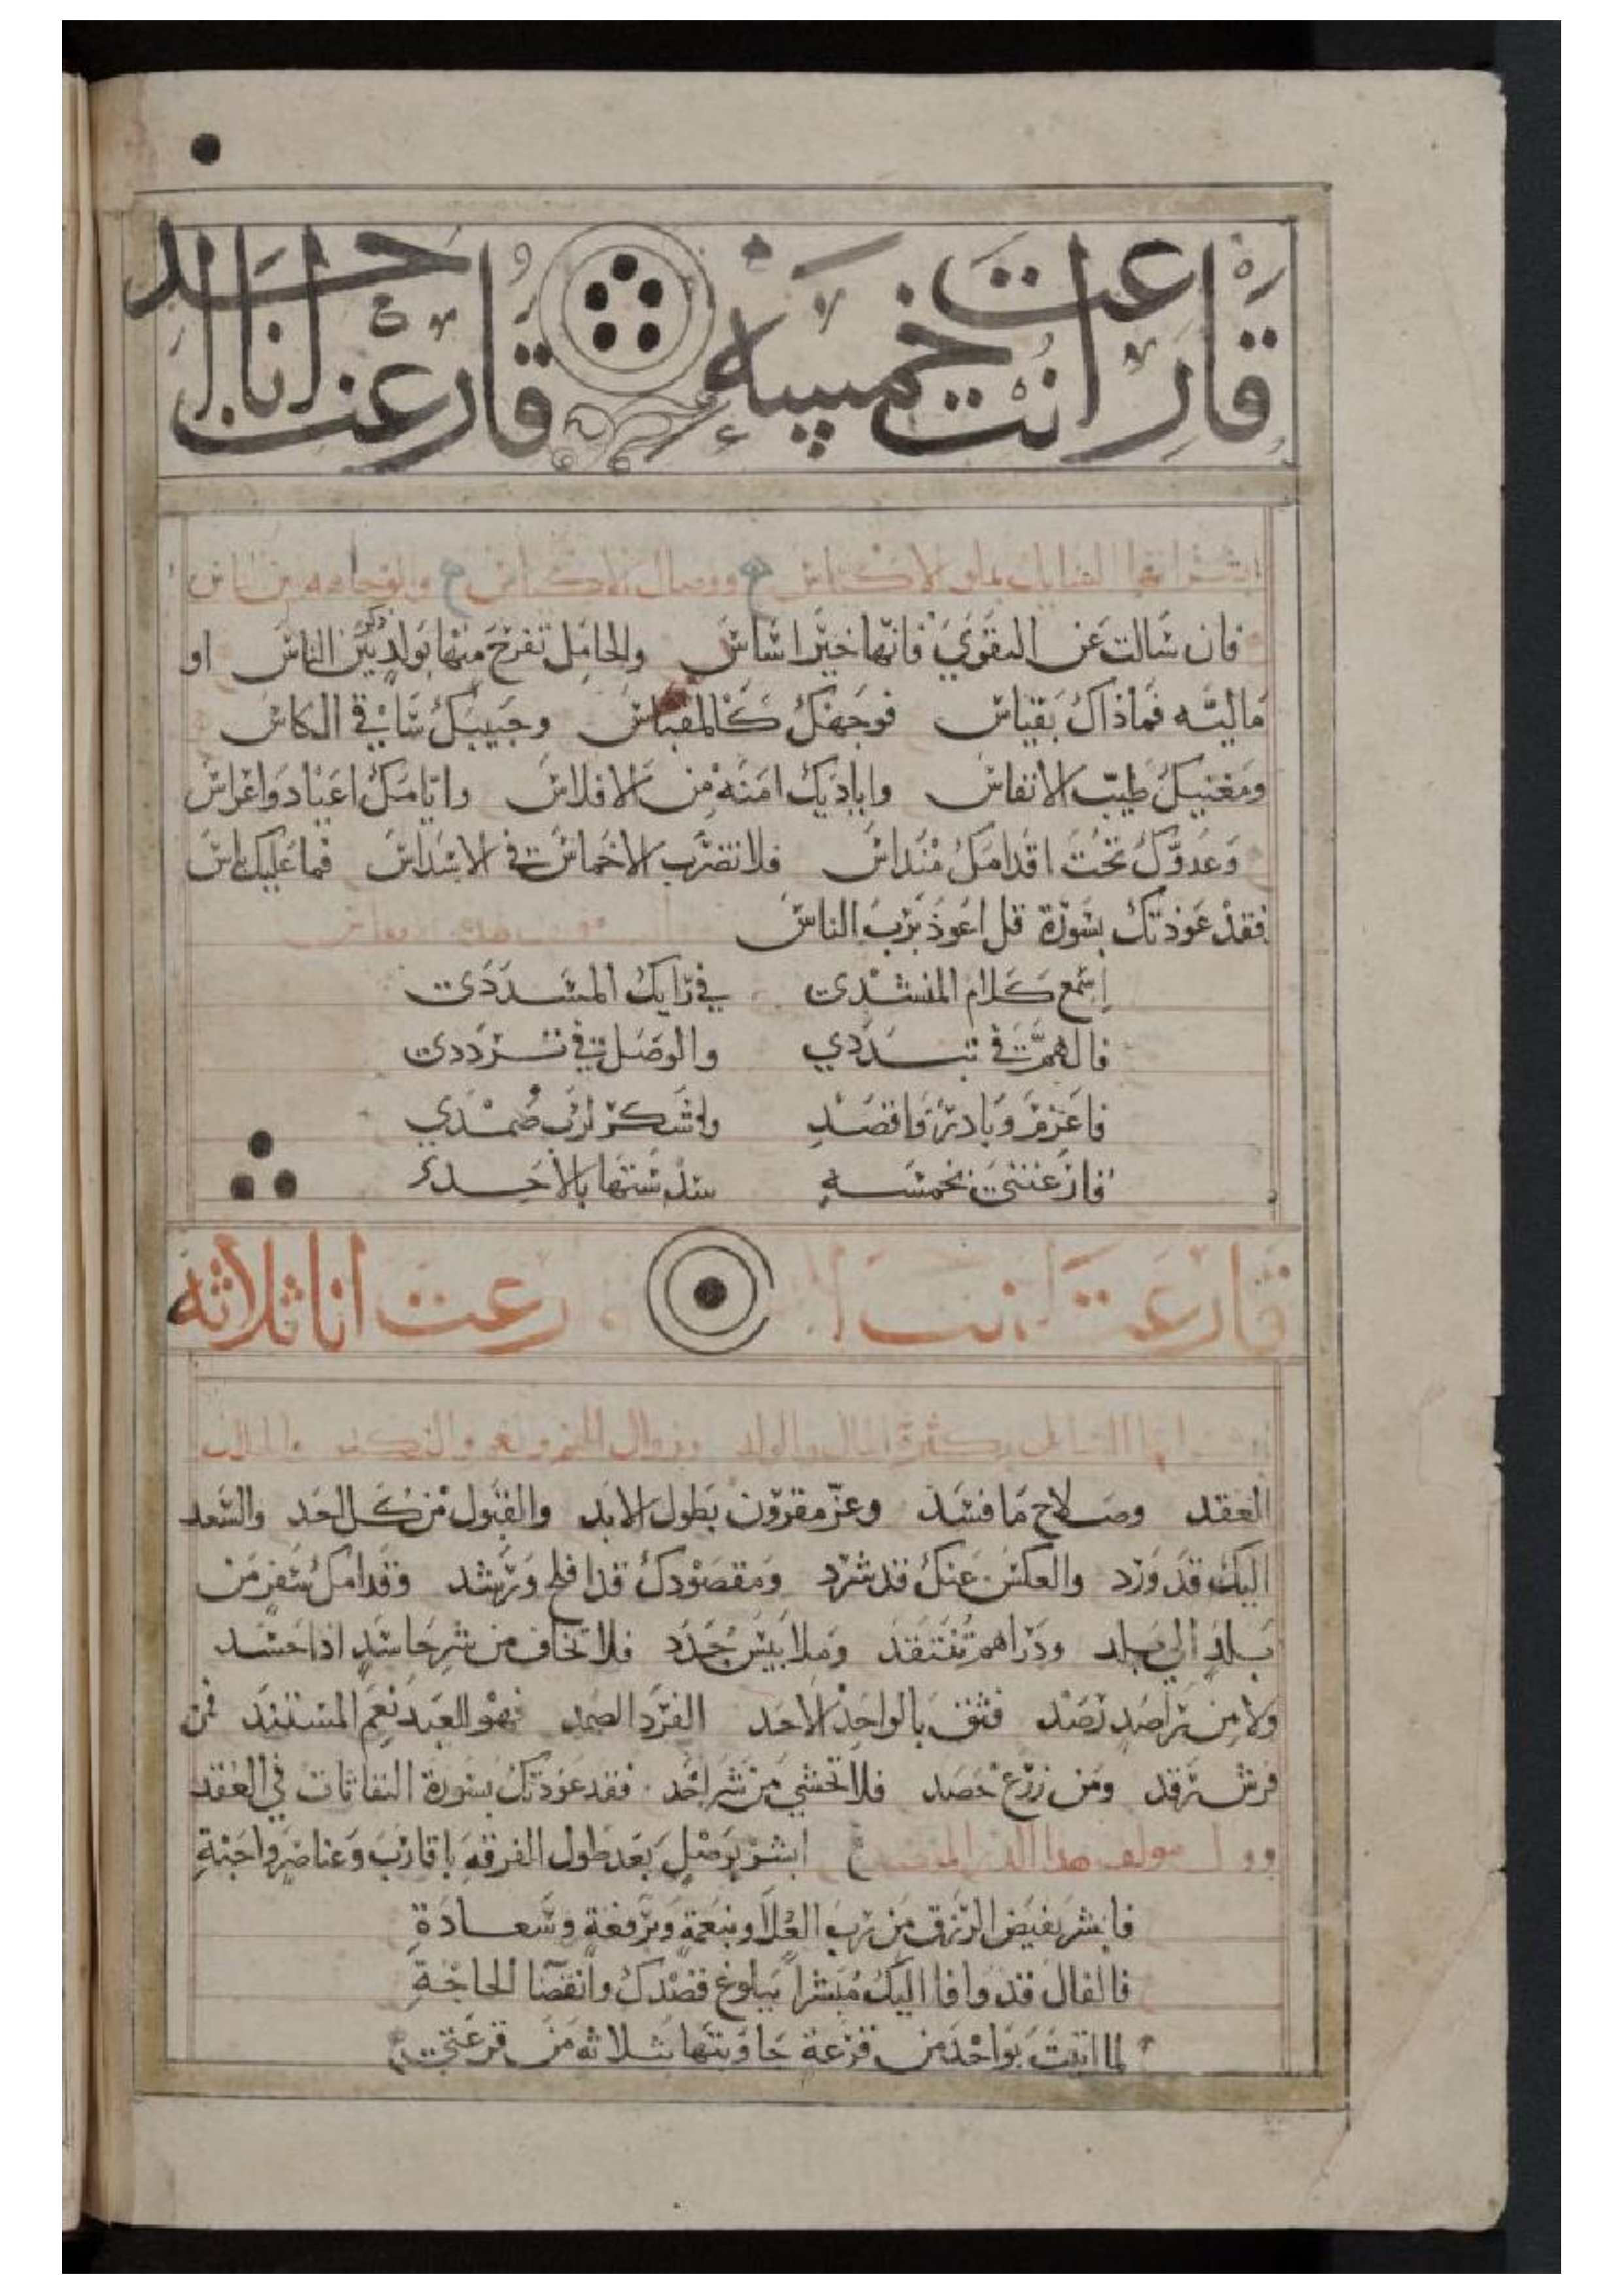 قارعت انت خمسه قارعت انا احد
ابشر ايها
فان سالت عن التقوي فانها خير اساس والحامل تفرح منها بولد ذكر بين الناس او
ماليته فماذاك بقياس فوجهك كالمقباس وحبيبك ساقي الكاس
ومغنيك طيب الانفاس واياديك امنه من الافلاس وايامك اعياد واعراس
وعدوك تحت اقدامك منداس فلا تضرب الاخماس في الاسداس فما عليك باس
فقد عوذتك بسورة قل اعوذ برب الناس
إسمع كلام المنشدي في رايك المسددي
فالهم في تبددي والوصل في ترددي
فاعزم وبادر واقصد واشكر لرب صمدي
قارعتني بخمسه سدستها بالاحد
قارعت انت قارعت انا ثلاثه
ابشر ايها السايل بكثرة المال والولد وزوال الهم
العقد وصلاح ما فسد وعز مقرون بطول الابد والقبول من كل احد والسعد
اليك قد ورد والعكس عنك قد شرد ومقصودك قد افلح ورشد وقدامك سفر من
بلد الي بلد ودراهم تنتقد وملابيس جدد فلا تخاف من شر حاسد اذا حسد
ولا من راصد رصد فثق بالواحد الاحد الفرد الصمد فهو للعبد نعم المستند فمن
فرش رقد ومن زرع حصد فلا تخشي من شر احد فقد عوذتك بسورة النفاثات في العقد
ابشر بوصل بعد طول الفرقه باقارب وعناصر واحبة
فابشر بفيض الرزق من رب العلا وبنعمة وبرفعة وسعادة
فالفال قد وافا اليك مبشرا ببلوغ قصدك وانقضا الحاجة
لما اتيت بواحد من قرعة جاوبتها بثلاثه من قرعتي